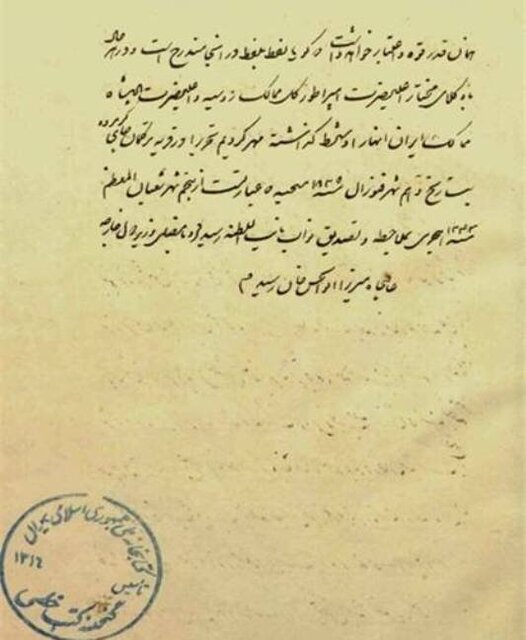 همان قدر قوه و اعتبار خواهد داشت که گویا لفظ بلفظ در اینجا مندرج است و در حاله
ما وکلای مختار اعلیحضرت امپراطور کل ممالک روسیه و اعلیحضرت پادشاه
ممالک ایران اظهار او شرط گذاشته مهر کردیم تحریرا در قریه ترکمان چای
بتاریخ دهم شهر فورال سنه ۱۸۲۸ مسیحیه که عبارتست از پنجم شهر شعبان المعظم
سنه ۱۲۴۳ هجری بملاحظه و تصدیق نواب نایب السلطنه رسید وزیر دول خارجه
عالیجاه میرزا ابوالحسن خان رسیدیم
کتابخانه ملی جمهوری اسلامی ایران
تاسیس
۱۳۱۶
گنجینه کتب خطی